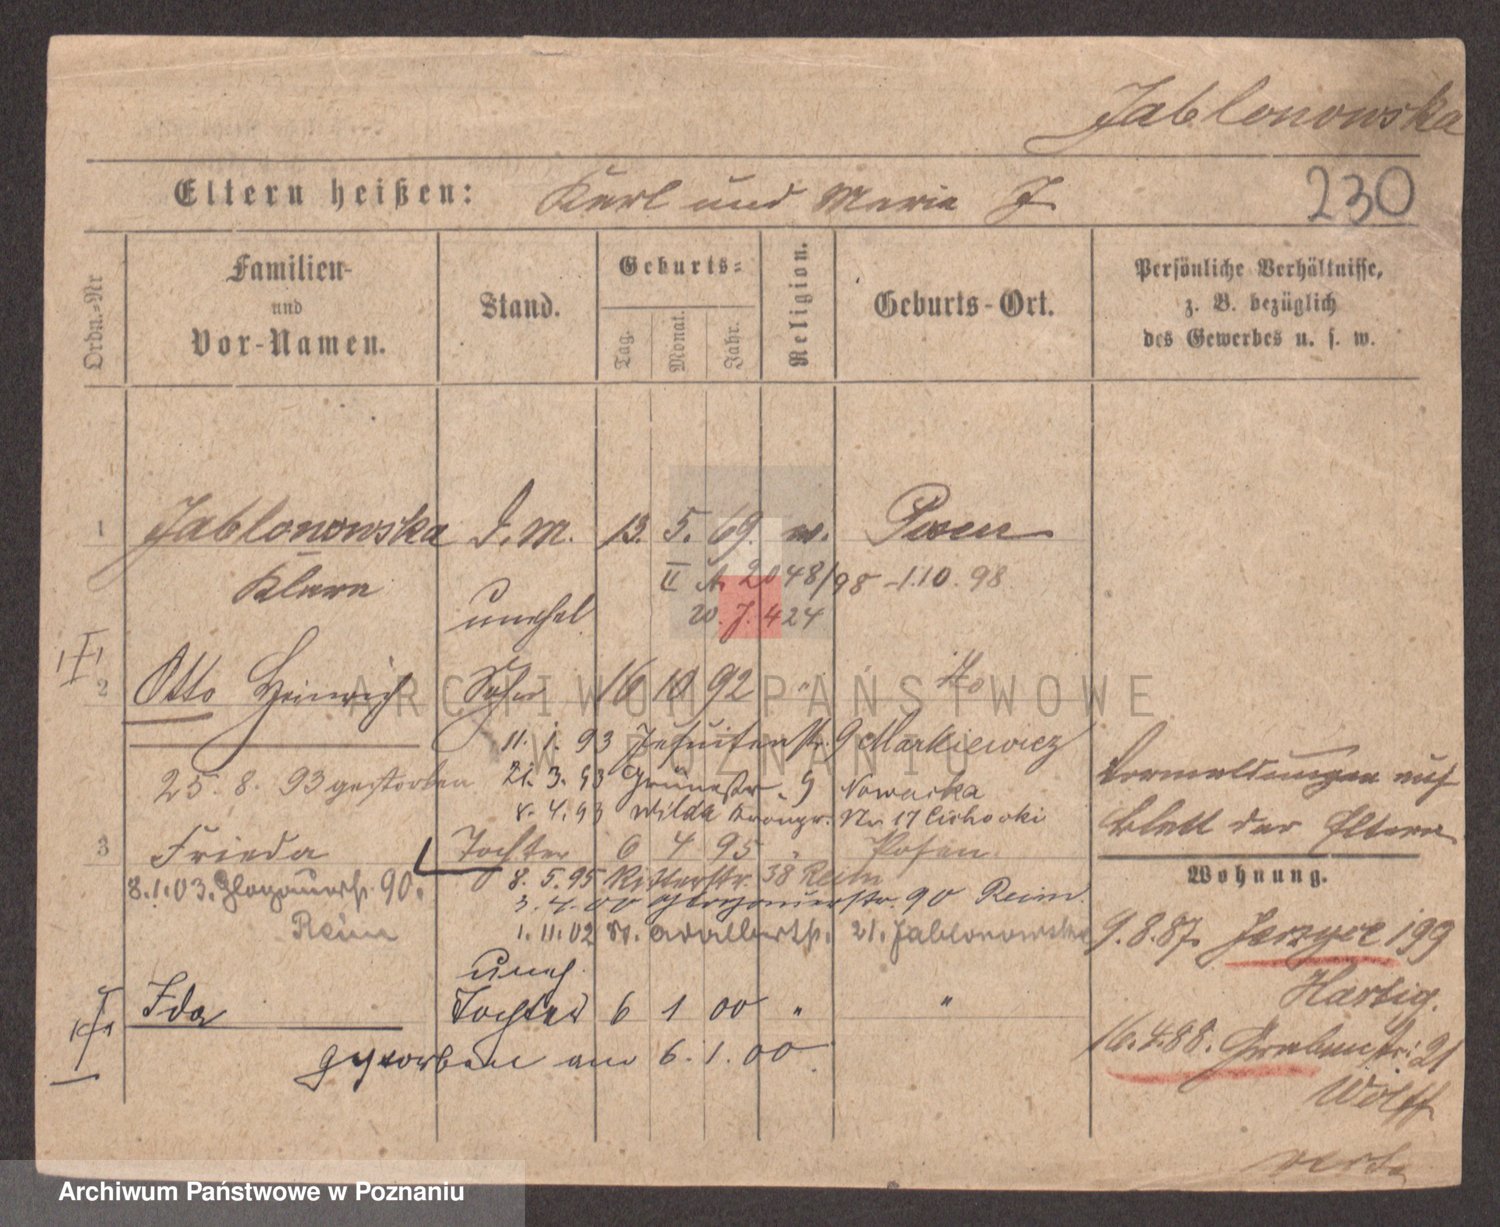 Jablonowska
Eltern heißen: Karl und Marie J.
230
Ordn.-Nr
Familien-
und
Vor-Namen.
Stand.
Geburts-
Tag.
Monat.
Jahr.
Religion.
Geburts-Ort.
Persönliche Verhältnisse,
z. B. bezüglich
des Gewerbes u. s. w.
1 Jablonowska D. M. 13. 5. 69. w. Posen
Klara II A. 2048/98 - 1.10.98
unehel. W. J. 424
2 Otto Heinrich Sohn 16 10 92 " do
11. 1. 93 Jesuitenstr. 9 Markiewicz
25. 8. 93 gestorben 21. 3. 93 Grünestr. 9 Nowacka
8. 4. 93 Wilda Kronpr. No 17 Cichocki
Vermeldungen auf
Blatt der Eltern
3 Frieda Tochter 6 4 95 " Posen
8. 5. 95 Ritterstr. 38 Reim
8.1.03. Glogauerstr. 90.
Reim
3. 4. 00 Glogauerstr. 90 Reim.
1. 11. 02 St. Adalbertstr. 21. Jablonowska
Wohnung.
9. 8. 87. Jerzyce 199
Hartig.
uneh.
Ida Tochter 6 1 00 " "
gestorben am 6. 1. 00
16. 4. 88. Grabenstr. 21
Wolff
ARCHIWUM PAŃSTWOWE
W POZNANIU
Archiwum Państwowe w Poznaniu